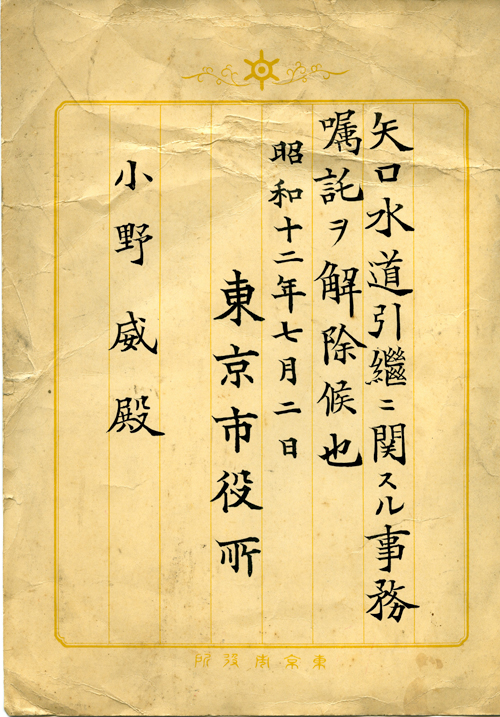 矢口水道引繼ニ関スル事務
嘱託ヲ解除候也
昭和十二年七月二日
東京市役所
小野威殿
東京市役所